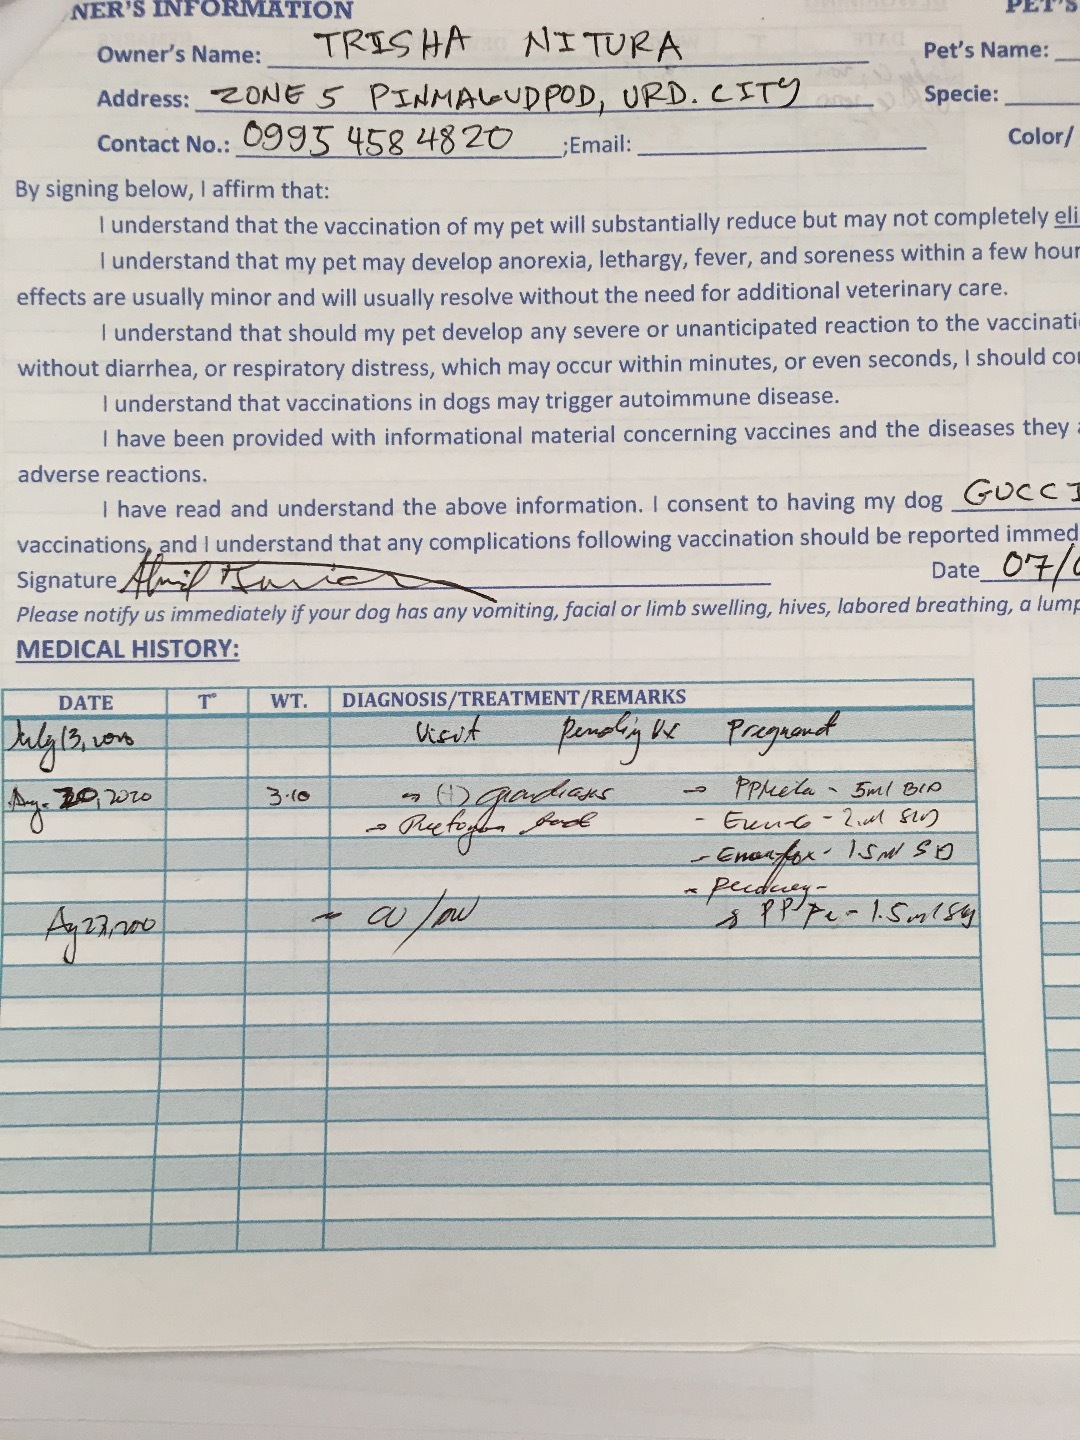 NER'S INFORMATION PET'S
Owner's Name: TRISHA NITURA Pet's Name:
Address: ZONE 5 PINMALUDPOD, URD. CITY Specie:
Contact No.: 0995 458 4820 ;Email: Color/
By signing below, I affirm that:
I understand that the vaccination of my pet will substantially reduce but may not completely eli
I understand that my pet may develop anorexia, lethargy, fever, and soreness within a few hour
effects are usually minor and will usually resolve without the need for additional veterinary care.
I understand that should my pet develop any severe or unanticipated reaction to the vaccinati
without diarrhea, or respiratory distress, which may occur within minutes, or even seconds, I should co
I understand that vaccinations in dogs may trigger autoimmune disease.
I have been provided with informational material concerning vaccines and the diseases they a
adverse reactions.
I have read and understand the above information. I consent to having my dog GUCCI
vaccinations, and I understand that any complications following vaccination should be reported immed
Signature Date 07/
Please notify us immediately if your dog has any vomiting, facial or limb swelling, hives, labored breathing, a lump
MEDICAL HISTORY:
DATE T° WT. DIAGNOSIS/TREATMENT/REMARKS
July 13, Visit Pending Vx Pregnant
Aug. 20, 2020 3.10 → (+) → - 5ml BID
→ - - 2ml
- - 1.5ml
-
- 1.5ml